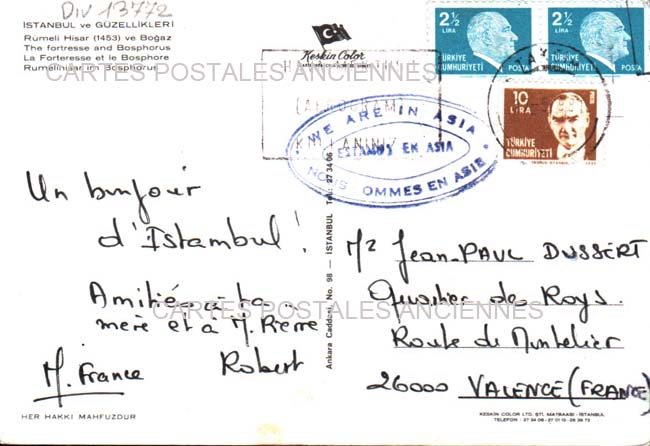 Div 13772
İSTANBUL ve GÜZELLİKLERİ
Rümeli Hisar (1453) ve Boğaz
The fortresse and Bosphorus
La Forteresse et le Bosphore
Rumelihisar im Bosphorus
Keskin Color
2½ LİRA
TÜRKİYE CUMHURİYETİ POSTA
2½ LİRA
TÜRKİYE CUMHURİYETİ POSTA
10 LİRA
TÜRKİYE CUMHURİYETİ
CARTES POSTALES ANCIENNES
KULLANINIZ
WE ARE IN ASIA
ESTAMOS EN ASIA
NOUS SOMMES EN ASIE
Un bonjour
d'Istambul!
Amitiés à la
mère et à M. Pierre
Robert
M. France
Ankara Caddesi, No. 98 — İSTANBUL Tel.: 27 34 06
Mr Jean-PAUL DUSSERT
Quartier des Roys.
Route de Montelier
26000 VALENCE (FRANCE)
CARTES POSTALES ANCIENNES
HER HAKKI MAHFUZDUR
KESKİN COLOR LTD. ŞTİ. MATBAASI - İSTANBUL